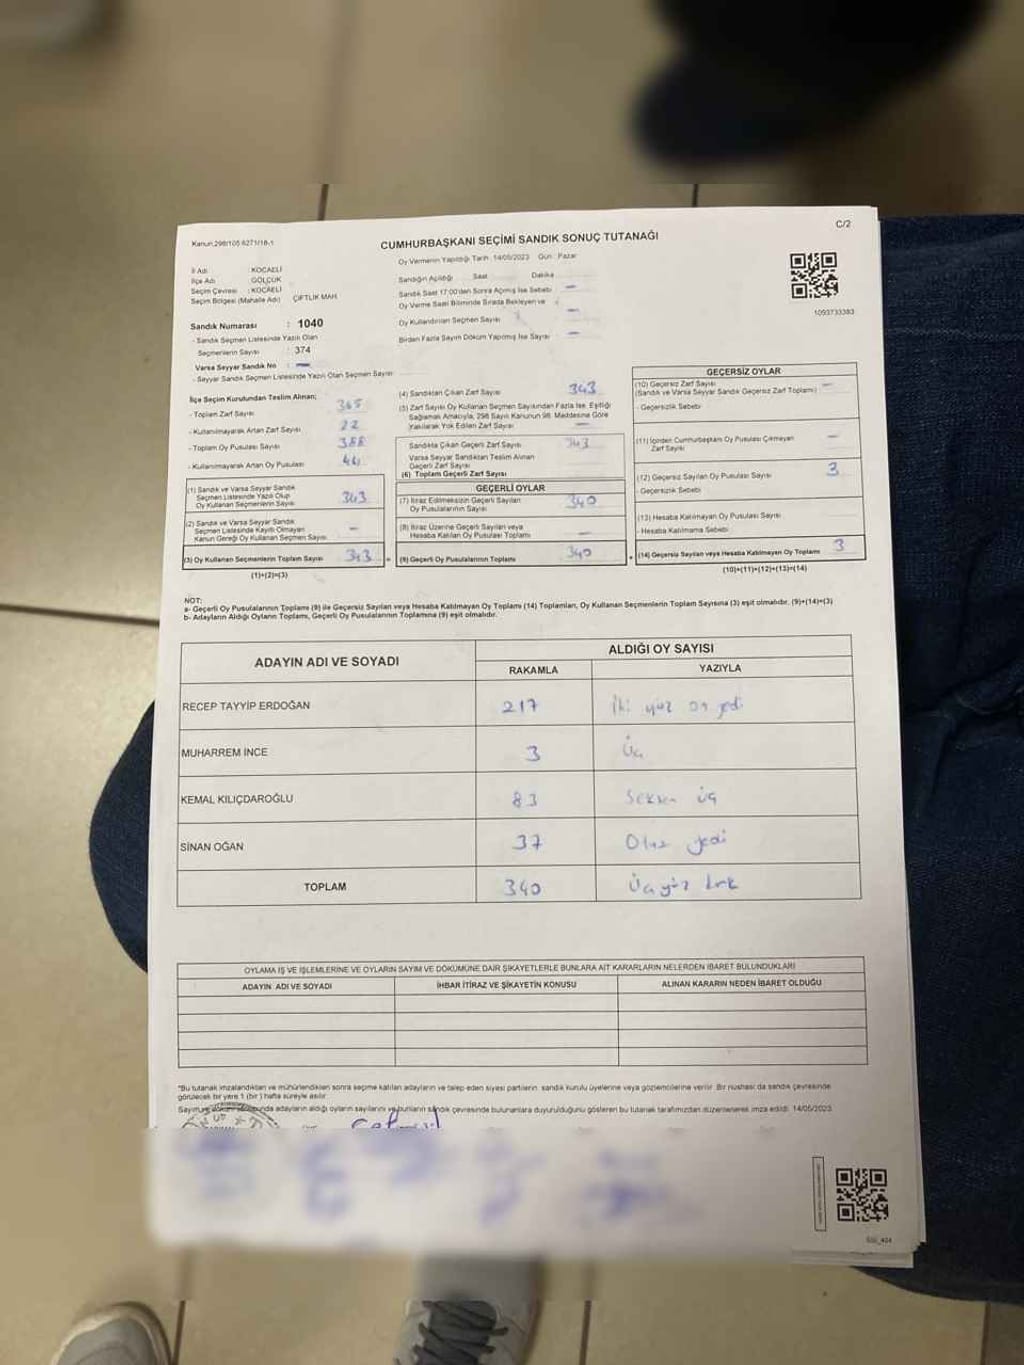 Kanun,298/105 6271/18-1
C/2
CUMHURBAŞKANI SEÇİMİ SANDIK SONUÇ TUTANAĞI
Oy Vermenin Yapıldığı Tarih : 14/05/2023 Gün : Pazar
İl Adı : KOCAELİ
İlçe Adı : GÖLCÜK
Seçim Çevresi : KOCAELİ
Seçim Bölgesi (Mahalle Adı) ÇİFTLİK MAH.
Sandık Numarası : 1040
- Sandık Seçmen Listesinde Yazılı Olan
Seçmenlerin Sayısı : 374
Varsa Seyyar Sandık No : -
- Seyyar Sandık Seçmen Listesinde Yazılı Olan Seçmen Sayısı
Sandığın Açıldığı Saat Dakika
Sandık Saat 17:00'den Sonra Açılmış İse Sebebi -
Oy Verme Saati Bitiminde Sırada Bekleyen ve
Oy Kullandırılan Seçmen Sayısı -
Birden Fazla Sayım Döküm Yapılmış İse Sayısı -
1093733383
İlçe Seçim Kurulundan Teslim Alınan;
- Toplam Zarf Sayısı 365
- Kullanılmayarak Artan Zarf Sayısı 22
- Toplam Oy Pusulası Sayısı 388
- Kullanılmayarak Artan Oy Pusulası
(1) Sandık ve Varsa Seyyar Sandık
Seçmen Listesinde Yazılı Olup
Oy Kullanan Seçmenlerin Sayısı 343
(2) Sandık ve Varsa Seyyar Sandık
Seçmen Listesinde Kayıtlı Olmayan
Kanun Gereği Oy Kullanan Seçmen Sayısı -
(3) Oy Kullanan Seçmenlerin Toplam Sayısı 343 =
(1)+(2)=(3)
(4) Sandıktan Çıkan Zarf Sayısı 343
(5) Zarf Sayısı Oy Kullanan Seçmen Sayısından Fazla İse, Eşitliği
Sağlamak Amacıyla, 298 Sayılı Kanunun 98. Maddesine Göre
Yakılarak Yok Edilen Zarf Sayısı -
Sandıkta Çıkan Geçerli Zarf Sayısı 343
Varsa Seyyar Sandıktan Teslim Alınan
Geçerli Zarf Sayısı
(6) Toplam Geçerli Zarf Sayısı
GEÇERLİ OYLAR
(7) İtiraz Edilmeksizin Geçerli Sayılan
Oy Pusulalarının Sayısı 340
(8) İtiraz Üzerine Geçerli Sayılan veya
Hesaba Katılan Oy Pusulası Toplamı -
(9) Geçerli Oy Pusulalarının Toplamı 340 +
GEÇERSİZ OYLAR
(10) Geçersiz Zarf Sayısı -
(Sandık ve Varsa Seyyar Sandık Geçersiz Zarf Toplamı)
- Geçersizlik Sebebi
(11) İçinden Cumhurbaşkanı Oy Pusulası Çıkmayan
Zarf Sayısı -
(12) Geçersiz Sayılan Oy Pusulası Sayısı 3
- Geçersizlik Sebebi
(13) Hesaba Katılmayan Oy Pusulası Sayısı
- Hesaba Katılmama Sebebi
(14) Geçersiz Sayılan veya Hesaba Katılmayan Oy Toplamı 3
(10)+(11)+(12)+(13)=(14)
NOT:
a- Geçerli Oy Pusulalarının Toplamı (9) ile Geçersiz Sayılan veya Hesaba Katılmayan Oy Toplamı (14) Toplamları, Oy Kullanan Seçmenlerin Toplam Sayısına (3) eşit olmalıdır. (9)+(14)=(3)
b- Adayların Aldığı Oyların Toplamı, Geçerli Oy Pusulalarının Toplamına (9) eşit olmalıdır.
ADAYIN ADI VE SOYADI
ALDIĞI OY SAYISI
RAKAMLA YAZIYLA
RECEP TAYYİP ERDOĞAN 217 İki yüz on yedi
MUHARREM İNCE 3 Üç
KEMAL KILIÇDAROĞLU 83 Seksen üç
SİNAN OĞAN 37 Otuz yedi
TOPLAM 340 Üçyüz kırk
OYLAMA İŞ VE İŞLEMLERİNE VE OYLARIN SAYIM VE DÖKÜMÜNE DAİR ŞİKAYETLERLE BUNLARA AİT KARARLARIN NELERDEN İBARET BULUNDUKLARI
ADAYIN ADI VE SOYADI İHBAR İTİRAZ VE ŞİKAYETİN KONUSU ALINAN KARARIN NEDEN İBARET OLDUĞU
*Bu tutanak imzalandıktan ve mühürlendikten sonra seçime katılan adayların ve talep eden siyasi partilerin sandık kurulu üyelerine veya gözlemcilerine verilir. Bir nüshası da sandık çevresinde
görülecek bir yere 1 (bir) hafta süreyle asılır.
Sayım ve döküm sonunda adayların aldığı oyların sayılarını ve bunların sandık çevresinde bulunanlara duyurulduğunu gösteren bu tutanak tarafımızdan düzenlenerek imza edildi. 14/05/2023